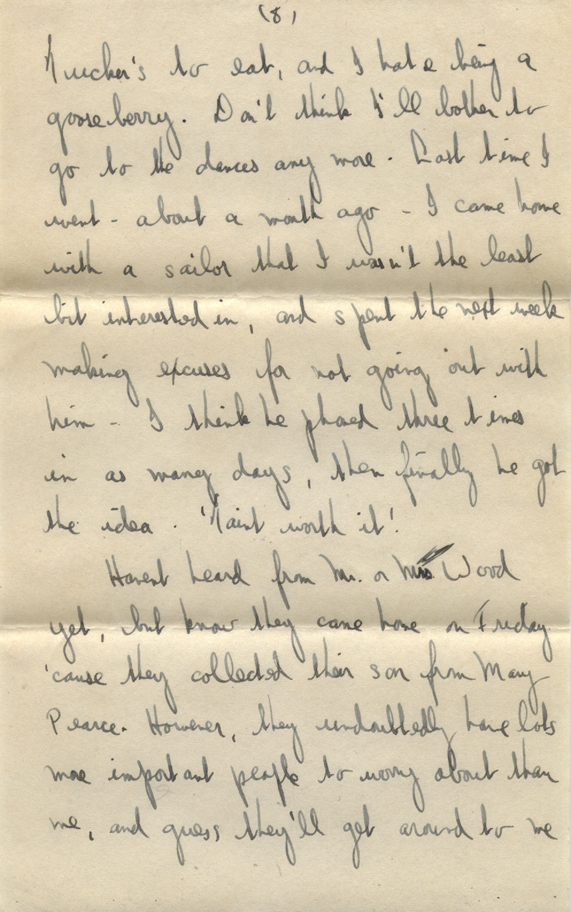 (8)
Tucker's to eat, and I hate being a
gooseberry. Don't think I'll bother to
go to the dances any more. Last time I
went - about a month ago - I came home
with a sailor that I wasn't the least
bit interested in, and spent the next week
making excuses for not going out with
him - I think he phoned three times
in as many days, then finally he got
the idea. 'Taint worth it'!
Havent heard from Mr. or Mrs Wood
yet, but know they came home on Friday
'cause they collected their son from Mary
Pearce. However, they undoubtedly have lots
more important people to worry about than
me, and guess they'll get around to me